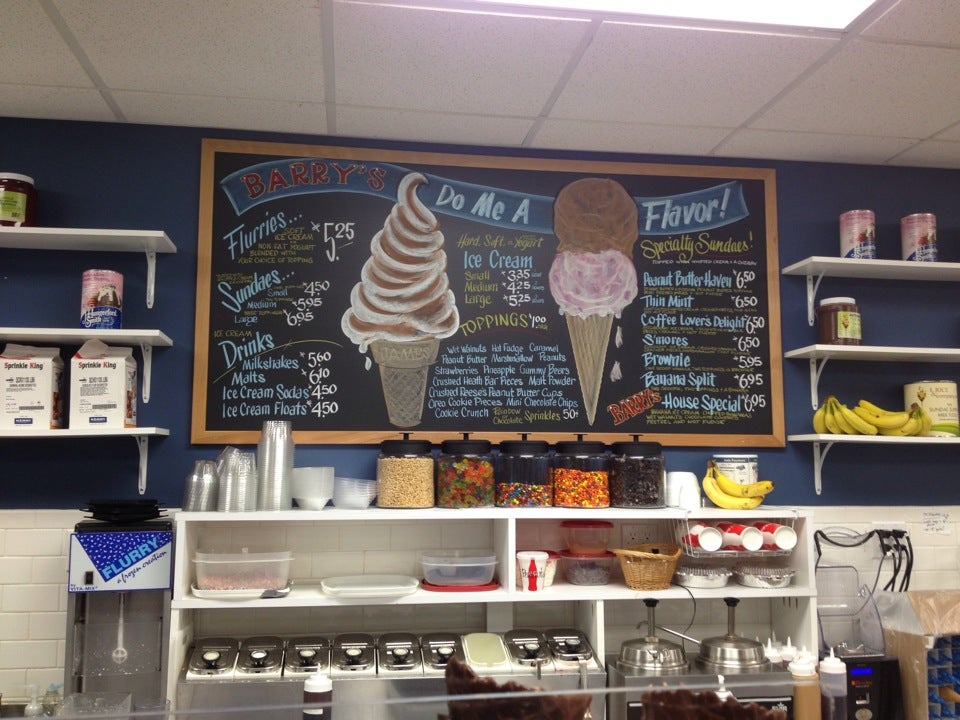 BARRY'S Do Me A Flavor!
Flurries... 5.25
SOFT
ICE CREAM
OR
NON FAT YOGURT
BLENDED WITH
YOUR CHOICE OF TOPPING
Sundaes...
Small 4.50
Medium 5.95
Large 6.95
ICE CREAM
Drinks
Milkshakes 5.60
Malts 6.10
Ice Cream Sodas 4.50
Ice Cream Floats 4.50
JAMES
Hard, Soft, or Yogurt
Ice Cream
Small 3.35
Medium 4.25
Large 5.25
TOPPINGS $1.00
Wet Walnuts Hot Fudge Caramel
Peanut Butter Marshmallow Peanuts
Strawberries Pineapple Gummy Bears
Crushed Heath Bar Pieces Malt Powder
Crushed Reese's Peanut Butter Cups
Oreo Cookie Pieces Mini Chocolate Chips
Cookie Crunch Rainbow or Chocolate Sprinkles 50¢
Specialty Sundaes!
TOPPED WITH WHIPPED CREAM & A CHERRY
Peanut Butter Haven 6.50
Thin Mint 6.50
Coffee Lover's Delight 6.50
S'mores 6.50
Brownie 5.95
Banana Split 6.95
BARRY'S House Special 6.95
Hungerford Smith
Sprinkle King
Sprinkle King
FLURRY
a frozen creation
by VITA-MIX